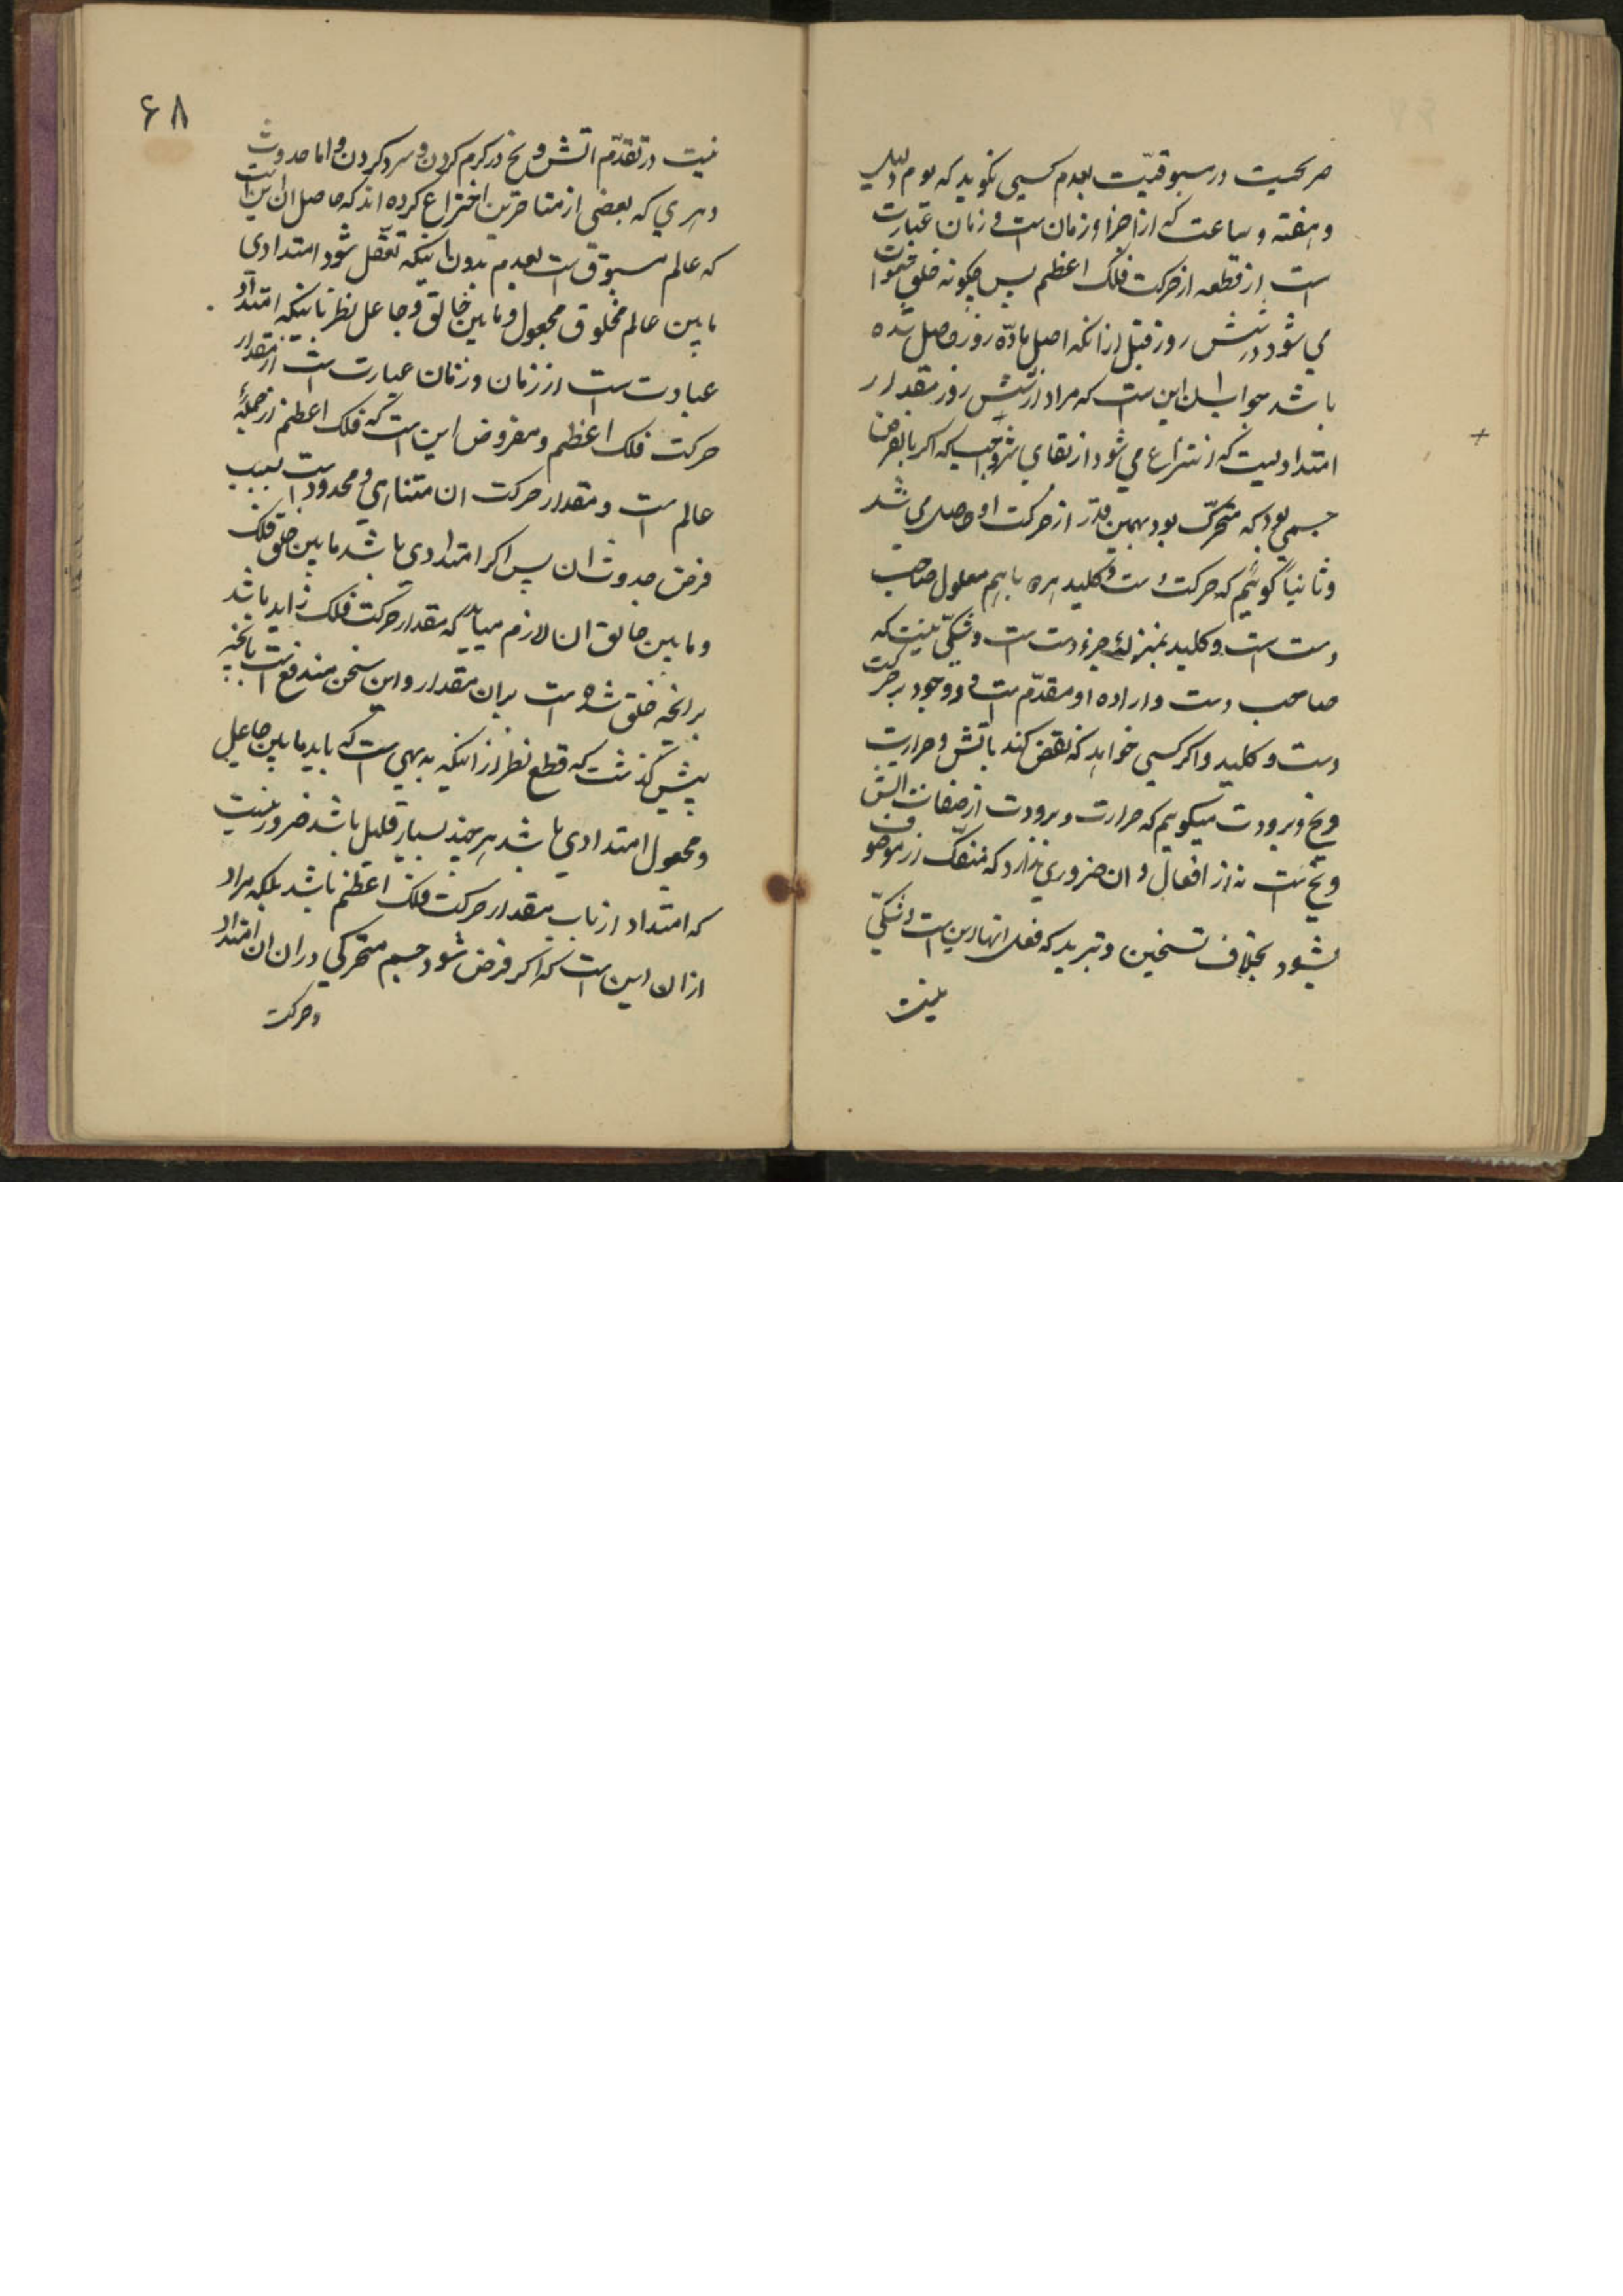 صریحیست در مسبوقیّت بعدم کسی نگوید که یوم و لیل
و هفته و ساعت که از اجزاء زمان است و زمان عبارت
است از قطعه از حرکت فلک اعظم پس چگونه خلق سموات
می شود در شش روز قبل از انکه اصل مادّه روز حاصل شده
باشد جوابش این است که مراد از شش روز مقدار
امتدادیست که انتزاع می شود از بقای واجب که اگر بالفرض
جسمی بود که متحرّک بود بهمین قدر از حرکت او حاصل می شد
و ثانیاً گوئیم که حرکت دست و کلید هر دو با هم معلول صاحب
دست است و کلید بمنزلهٔ جزء دست است و شکّی نیست که
صاحب دست و اراده او مقدّم است در وجود بر حرکت
دست و کلید و اگر کسی خواهد که نقض کند باتش و حرارت
و یخ و برودت میگویم که حرارت و برودت از صفات اتش
و یخ است نه از افعال و ان ضروری ندارد که منفکّ از موصوف
بشود بخلاف تسخین و تبرید که فعل انها این است و شکّی
نیست
۶۸
نیست در تقدّم اتش و یخ در گرم کردن و سرد کردن و اما حدوث
دهری که بعضی از متاخرین اختراع کرده اند که حاصل ان این است
که عالم مسبوق است بعدم بدون اینکه تعقّل شود امتدادی
مابین عالم مخلوق مجعول و مابین خالق و جاعل نظر باینکه امتداد
عبارت است از زمان و زمان عبارت است از مقدار
حرکت فلک اعظم و مفروض این است که فلک اعظم از جملهٔ
عالم است و مقدار حرکت ان متناهی و محدود است بسبب
فرض حدوث ان پس اگر امتدادی باشد مابین خلق فلک
و مابین خالق ان لازم میاید که مقدار حرکت فلک زاید باشد
برانچه خلق شده است بران مقدار و این سخن مندفع است بانچه
پیش گذشت که قطع نظر از اینکه بدیهی است که باید مابین جاعل
و مجعول امتدادی باشد هر چند بسیار قلیل باشد ضرور نیست
که امتداد از باب مقدار حرکت فلک اعظم باشد بلکه مراد
از ان این است که اگر فرض شود جسم متحرکی در ان امتداد
و حرکت